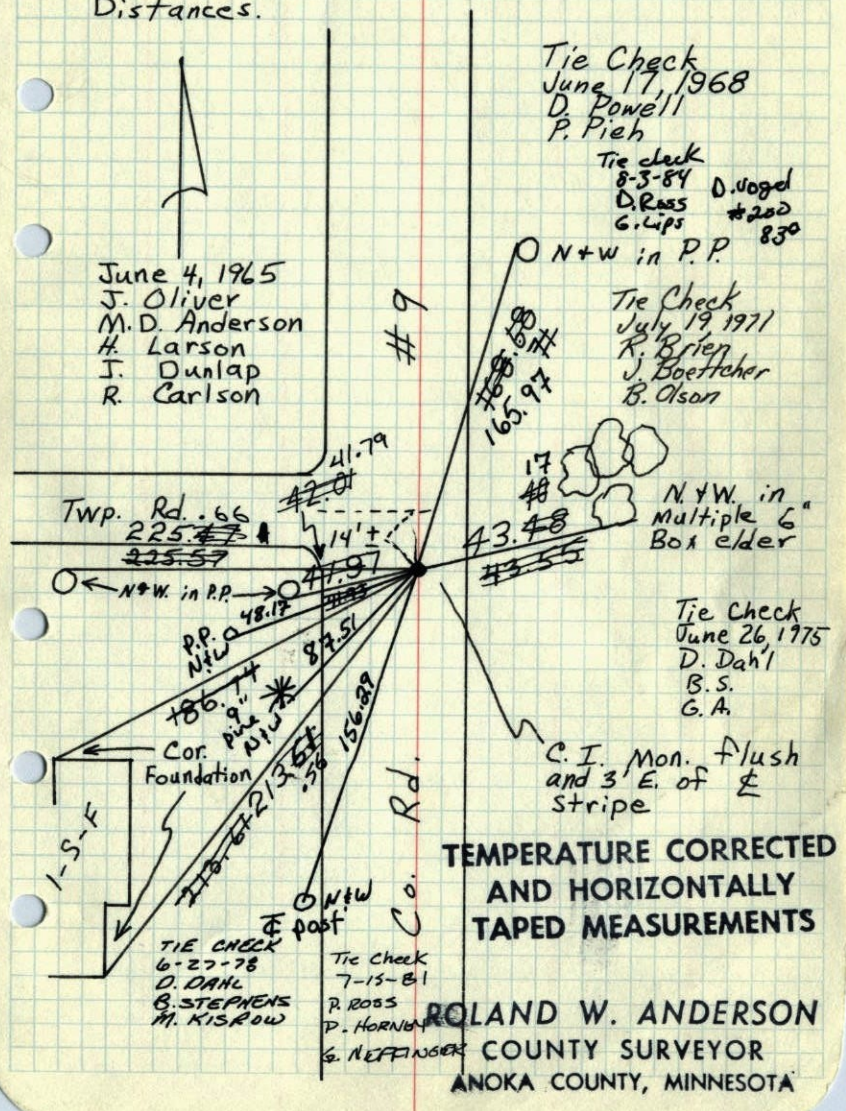 Distances.
Tie Check
June 17, 1968
D. Powell
P. Pieh
Tie check
8-3-84
D. Ross
G. Lips
D. Vogel
#200
83°
N+W in P.P.
June 4, 1965
J. Oliver
M.D. Anderson
H. Larson
J. Dunlap
R. Carlson
# 9
168.68
71
165.97
Tie Check
July 19, 1971
R. Brien
J. Boettcher
B. Olson
41.79
42.01
17
48
N.+W. in
Multiple 6"
Box elder
Twp. Rd. .66
225.47
225.57
14'±
43.48
43.55
41.97
N+W. in P.P.
48.17
P.P.
N+W
87.51
9"
pine
N+W
156.29
Tie Check
June 26, 1975
D. Dahl
B.S.
G.A.
Cor.
Foundation
213.61
.56
1-S-F
C.I. Mon. flush
and 3' E. of ℄
Stripe
Co. Rd.
N+W
post
TEMPERATURE CORRECTED
AND HORIZONTALLY
TAPED MEASUREMENTS
TIE CHECK
6-27-78
D. DAHL
B. STEPHENS
M. KISROW
Tie Check
7-15-81
D. ROSS
D. HORNBY
G. NEFFINGER
ROLAND W. ANDERSON
COUNTY SURVEYOR
ANOKA COUNTY, MINNESOTA